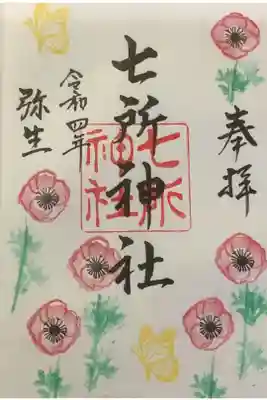 奉拝
七所神社
七所神社
令和四年
弥生